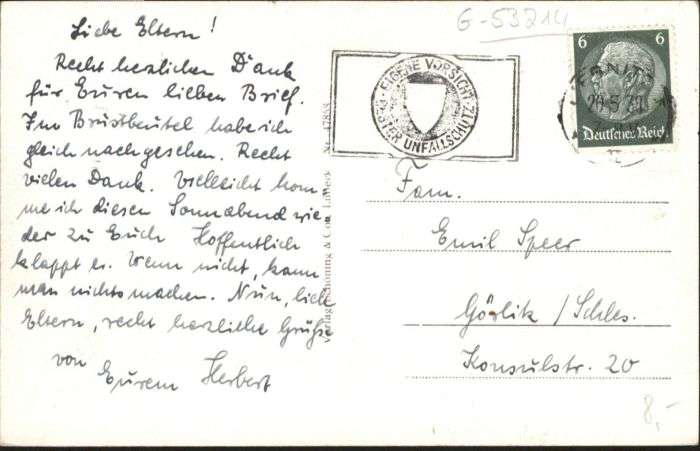 Liebe Eltern!
Recht herzlichen Dank
für Euren lieben Brief.
Im Brustbeutel habe ich
gleich nachgesehen. Recht
vielen Dank. Vielleicht kom
me ich diesen Sonnabend wie
der zu Euch Hoffentlich
klappt es. Wenn nicht, kann
man nichts machen. Nun, liebe
Eltern, recht herzliche Grüße
von
Eurem Herbert
Verlag Schöning & Co., Lübeck
G-53214
EIGENE VORSICHT
BESTER UNFALLSCHUTZ
6 6
Deutsches Reich
Fam.
Emil Speer
Görlitz / Schles.
Konsulstr. 20
8,-